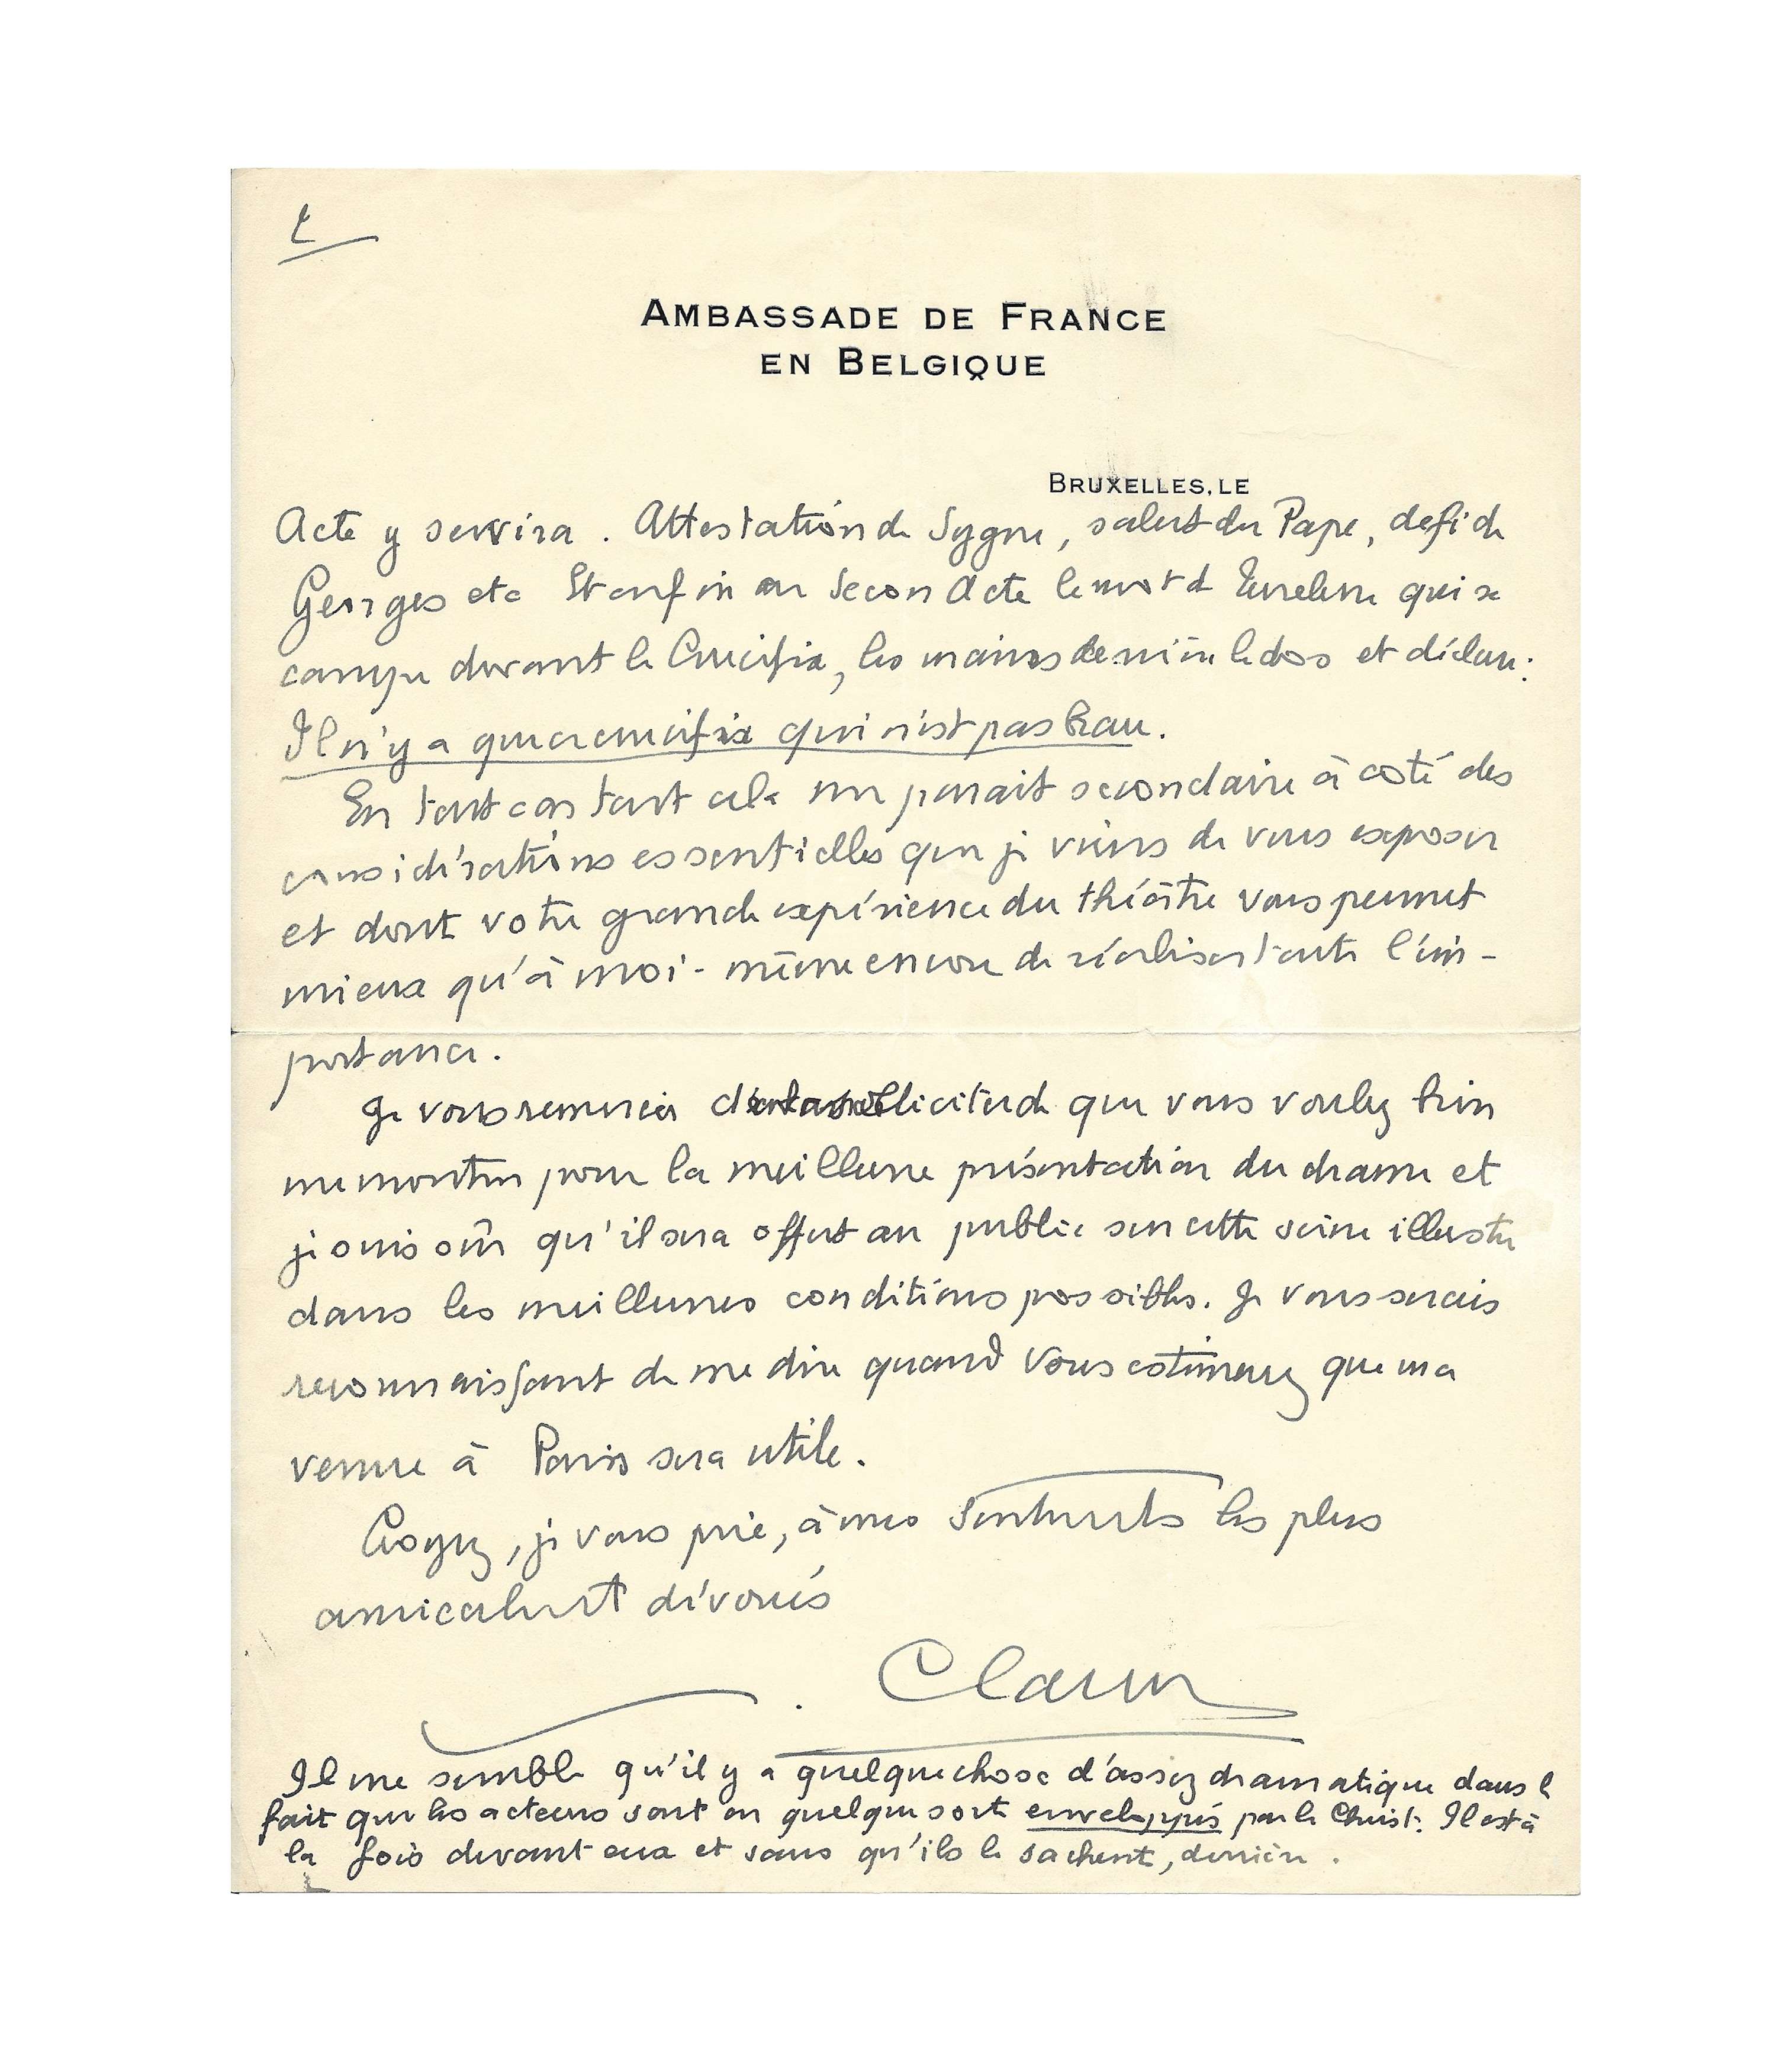 AMBASSADE DE FRANCE
EN BELGIQUE
BRUXELLES, LE
Acte y servira. Attestation de Sygne, salut du Pape, defi de
Georges etc Et enfin au second Acte le mot d Turelure qui se
campe devant le Crucifix, les mains derrière le dos et déclare:
Il n'y a que ce crucifix qui n'est pas beau.
En tout cas tout cela me parait secondaire à coté des
considérations essentielles que je viens de vous exposer
et dont votre grande expérience du théâtre vous permet
mieux qu'à moi-même encore de réaliser toute l'im-
portance.
Je vous remercie de la sollicitude que vous voulez bien
me montrer pour la meilleure présentation du drame et
je suis sûr qu'il sera offert au public sur cette scène illustre
dans les meilleures conditions possibles. Je vous serais
reconnaissant de me dire quand vous estimerez que ma
venue à Paris sera utile.
Croyez, je vous prie, à mes sentiments les plus
amicalement dévoués
Claudel
Il me semble qu'il y a quelque chose d'assez dramatique dans le
fait que les acteurs sont en quelque sorte enveloppés par le Christ. Il est à
la fois devant eux et sans qu'ils le sachent, derrière.